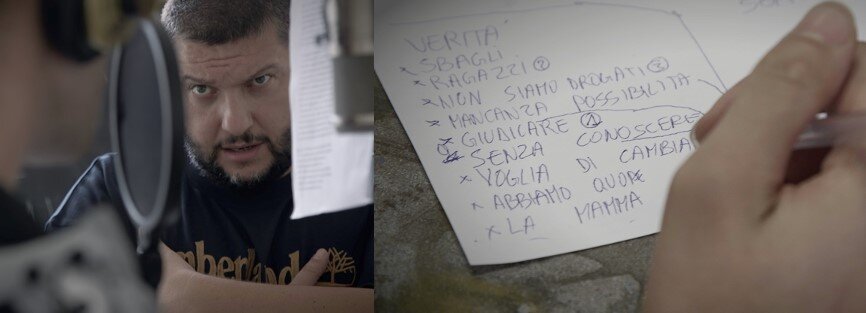 VERITÀ
x SBAGLI
x RAGAZZI ②
x NON SIAMO DROGATI ②
x MANCANZA POSSIBILITA
x GIUDICARE ①
SENZA CONOSCERE
x VOGLIA DI CAMBIA
x ABBIAMO QUORE
x LA MAMMA
mberland